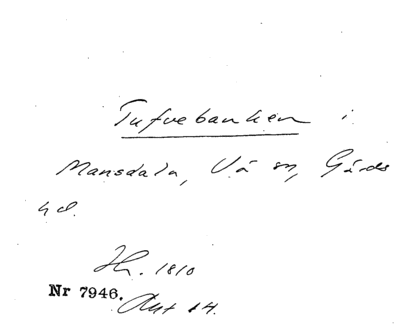 Tufvebanken i
Mansdala, Vä sn, Gärds
hd.
Hr. 1810
Nr 7946. Aut 14.